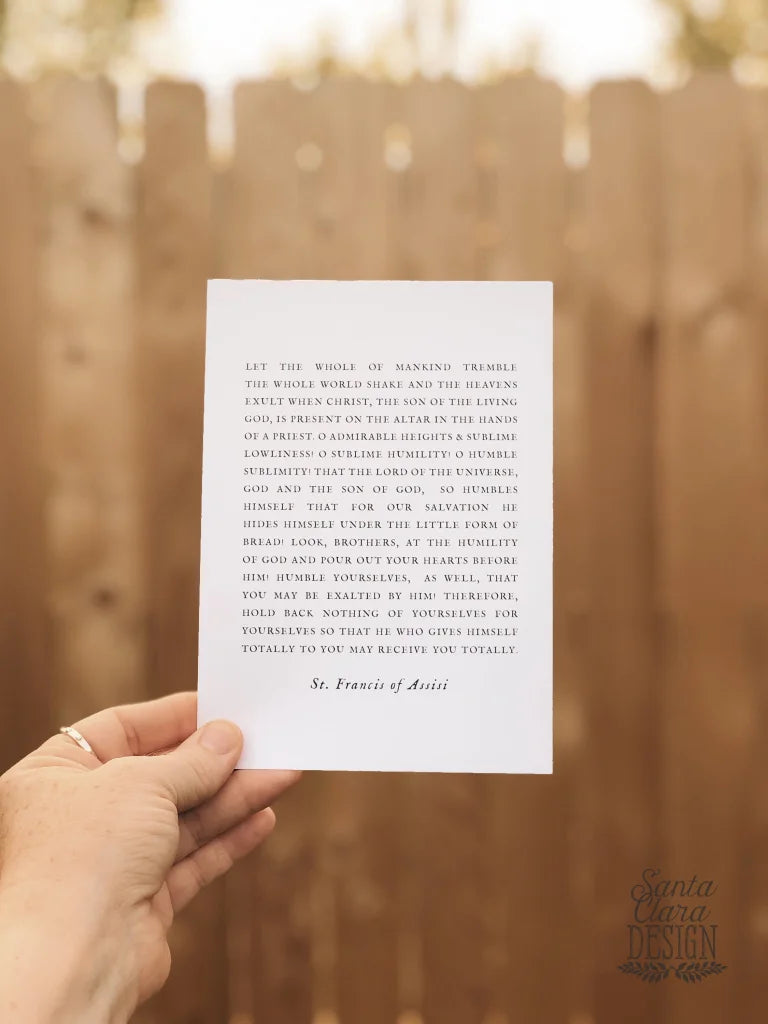 LET THE WHOLE OF MANKIND TREMBLE
THE WHOLE WORLD SHAKE AND THE HEAVENS
EXULT WHEN CHRIST, THE SON OF THE LIVING
GOD, IS PRESENT ON THE ALTAR IN THE HANDS
OF A PRIEST. O ADMIRABLE HEIGHTS & SUBLIME
LOWLINESS! O SUBLIME HUMILITY! O HUMBLE
SUBLIMITY! THAT THE LORD OF THE UNIVERSE,
GOD AND THE SON OF GOD, SO HUMBLES
HIMSELF THAT FOR OUR SALVATION HE
HIDES HIMSELF UNDER THE LITTLE FORM OF
BREAD! LOOK, BROTHERS, AT THE HUMILITY
OF GOD AND POUR OUT YOUR HEARTS BEFORE
HIM! HUMBLE YOURSELVES, AS WELL, THAT
YOU MAY BE EXALTED BY HIM! THEREFORE,
HOLD BACK NOTHING OF YOURSELVES FOR
YOURSELVES SO THAT HE WHO GIVES HIMSELF
TOTALLY TO YOU MAY RECEIVE YOU TOTALLY.
St. Francis of Assisi
Santa
Clara
DESIGN